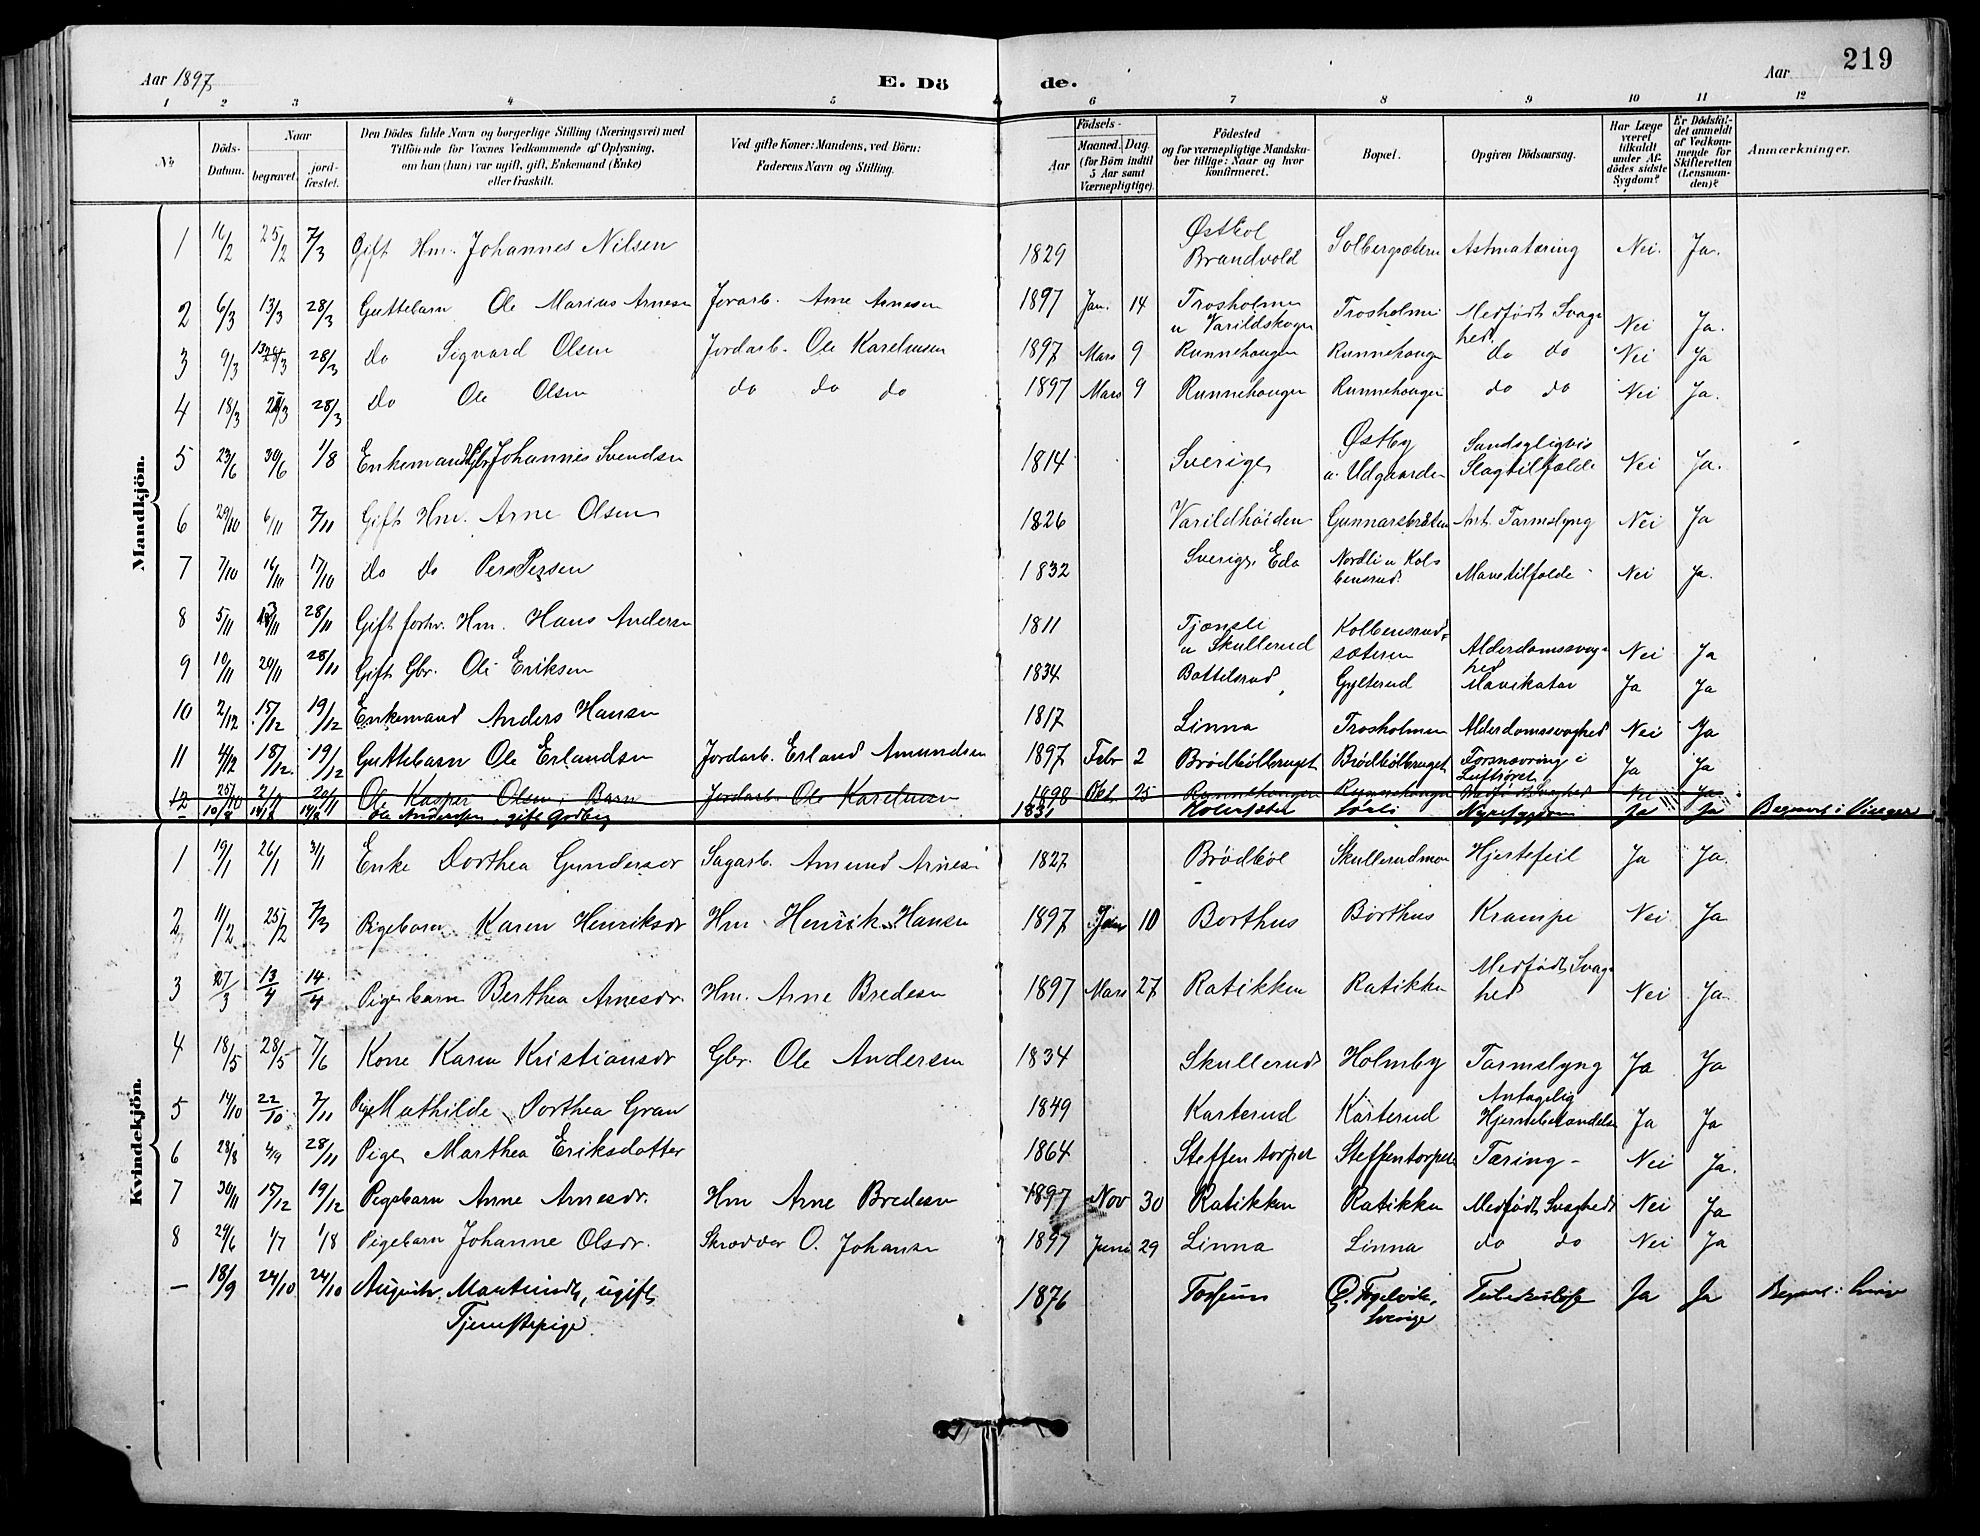 219
Aar 1897
E. Dö de.
Aar
1 2 3 4 5 6 7 8 9 10 11 12
No
Döds-Datum.
Naar
begravet.
jord-fæstet.
Den Dödes fulde Navn og borgerlige Stilling (Næringsvei) med
Tilföiende for Voxnes Vedkommende af Oplysning,
om han (hun) var ugift, gift, Enkemand (Enke)
eller fraskilt.
Ved gifte Koner: Mandens, ved Börn:
Faderens Navn og Stilling.
Födsels-
Aar
Maaned. Dag.
(for Börn indtil
5 Aar samt
Værnepligtige).
Födested
og for værnepligtige Mandskaber tillige: Naar og hvor
konfirmeret.
Bopæl.
Opgiven Dödsaarsag.
Har Læge
været
tilkaldt
under Afdödes sidste
Sygdom?
Er Dödsfaldet anmeldt
af Vedkommende for
Skifteretten
(Lensmanden)?
Anmærkninger.
Mandkjön.
1 16/2 25/2 7/3 Gift Hm. Johannes Nilsen 1829 Østkol Brandvold Solbergsætern Astmatæring Nei. Ja.
2 6/3 13/3 28/3 Guttebarn Ole Marius Arnesen Jorarb. Arne Arnesen 1897 Jan. 14 Trosholmen u Varildskogen Trosholmen Medfødt Svaghed. Nei Ja.
3 9/3 28/3 Do Sigvard Olsen Jordarb. Ole Karelusen 1897 Mars 9 Runnehaugen Runnehaugen do do Nei Ja
4 18/3 28/3 Do Ole Olsen do do do 1897 Mars 9 Runnehaugen Runnehaugen do do Nei Ja.
5 23/6 30/6 1/8 Enkemand Gbr Johannes Svendsen 1814 Sverige Østby u. Udgaarden Sandsyligvis Slagtilfælde Nei Ja.
6 29/10 6/11 7/11 Gift Hm. Arne Olsen 1826 Varildhøiden Gunnarsbråten Ant. Tarmslyng Nei Ja
7 7/10 16/10 17/10 Do Do Per Persen 1832 Sverige, Eda Nordli u Kolbensrud Mavetilfælde Nei Ja.
8 5/11 28/11 Gift forhv. Hm. Hans Andersen 1811 Tjænsli u Skullerud Kolbensrudsæteren Alderdomssvaghed Nei Ja
9 10/11 20/11 28/11 Gift Gbr. Ole Eriksen 1834 Bottelsrud Gylterud Mavekatar Ja Ja
10 2/12 15/12 19/12 Enkemand Anders Hansen 1817 Linna Trosholmen Alderdomssvaghed Nei Ja
11 4/12 18/12. 19/12 Guttebarn Ole Erlandsen Jordarb. Erland Amundsen 1897 Febr 2 Brødbølbruget Brødbølbruget Forsnevring i Luftrøret Ja Ja
12 25/10 20/11 Ole Kasper Olsen, Barn Jordarb. Ole Karelusen 1898 Okt. 25 Runnehaugen Runnehaugen Medfødt Svaghed Nei Ja
– Ole Andersen, gift 1831 Nyresygdom Ja Ja Begravet i
Kvindekjön.
1 19/1 26/1 31/1 Enke Dorthea Gundersdr Sagarb. Amund Arnesen 1827 Brødbøl Skullerudmon Hjertefeil Ja Ja.
2 11/2 25/2 7/3 Pigebarn Karen Henriksdr Hm. Henrik Hansen 1897 Jan 10 Borthus Borthus Krampe Nei Ja
3 27/3 13/4 14/4 Pigebarn Berthea Arnesdr. Hm. Arne Bredesen 1897 Mars 27 Ratikken Ratikken Medfødt Svaghed Nei Ja.
4 18/5 28/5 7/6 Kone Karen Kristiansdr Gbr. Ole Andersen 1834 Skullerud Holmby Tarmslyng Ja Ja
5 14/10 22/10 7/11 Pige Mathilde Dorthea Gran 1849 Karterud Karterud Antagelig Ja Ja
6 28/8 4/9 28/11 Pige Marthea Eriksdatter 1864 Steffentorpet Steffentorpet Tæring – Nei Ja.
7 30/11 15/12 19/12 Pigebarn Anne Arnesdr. Hm Arne Bredesen 1897 Nov 30 Ratikken Ratikken Medfødt Svaghed Nei Ja
8 29/6 4/7 1/8 Pigebarn Johanne Olsdr. Skrædder O. Johansen 1897 Juni 29 Linna Linna do do Nei Ja
– 18/9 24/10 24/10 ugift, Tjenestepige. 1876 Fossum Sverige Tuberkulose Ja Ja